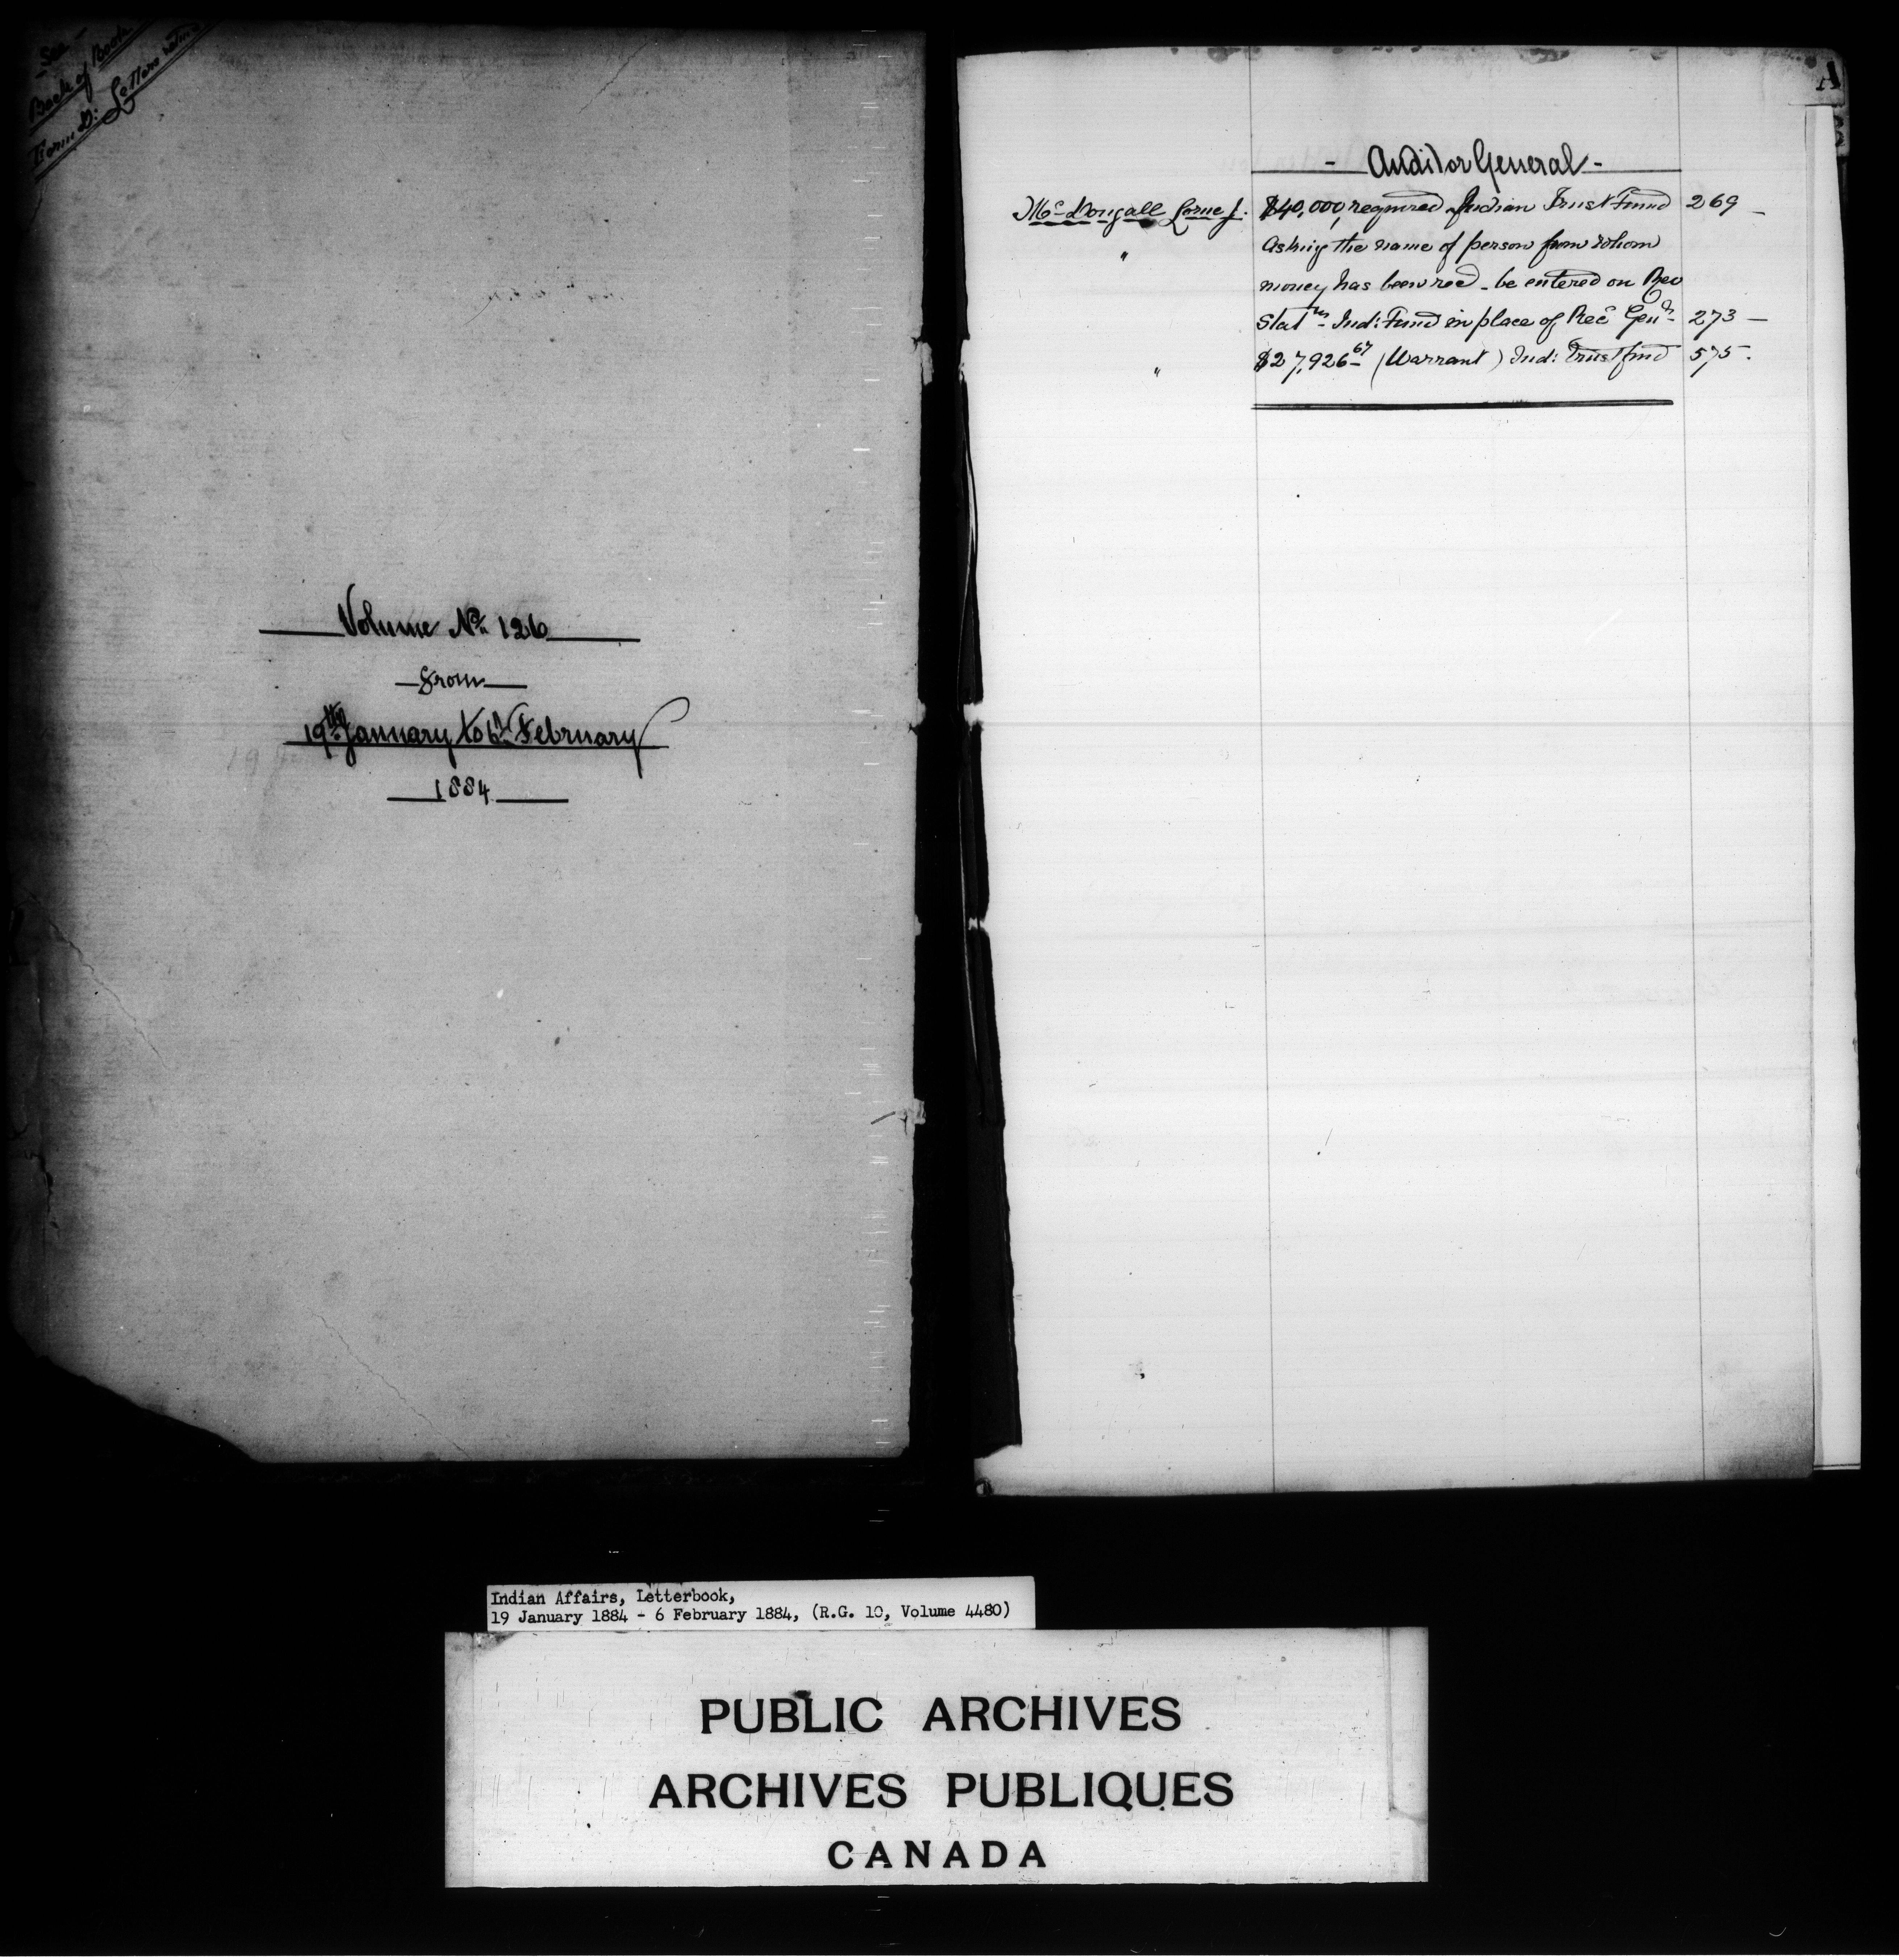 - See -
Back of Book
Form D: Letters
Volume No. 126
from
19th January to 6th February
1884
A
- Auditor General -
McDougall Lorne J. $40,000, required Indian Trust Fund 269 -
" Asking the name of person from whom
money has been recd - be entered on Rev
Statms - Ind: Fund in place of Rec Genl - 273 -
" $27,926 67 (Warrant) Ind: Trust fund 575.
Indian Affairs, Letterbook,
19 January 1884 - 6 February 1884, (R.G. 10, Volume 4480)
PUBLIC ARCHIVES
ARCHIVES PUBLIQUES
CANADA